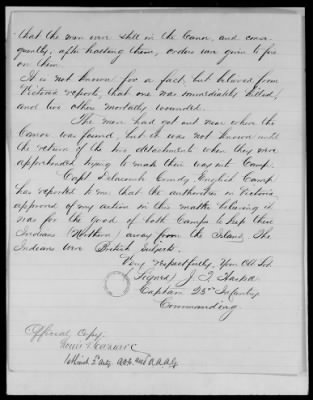 that the men were still in the Canoe, and conse-
quently, after halting them, orders were given to fire
on them.
It is not known for a fact, but believed from
Victoria reports, that one was immediately killed,
and two others mortally wounded.
The men had got out near where the
Canoe was found, but it was not known until
the return of the two detachments when they were
apprehended trying to make their way into Camp.
Capt Delacombe Comdg English Camp
has reported to me, that the authorities in Victoria,
approved of my action in this matter believing it
was for the good of both Camps to keep these
Indians (Northern) away from the Island, The
Indians were British subjects.
Very respectfully, Your Obt Svt
(Signed) J. T. Haskell
Captain 23rd Infantry
Commanding
Official Copy
Louis V. Caziarc
1st Lieut 5" Arty